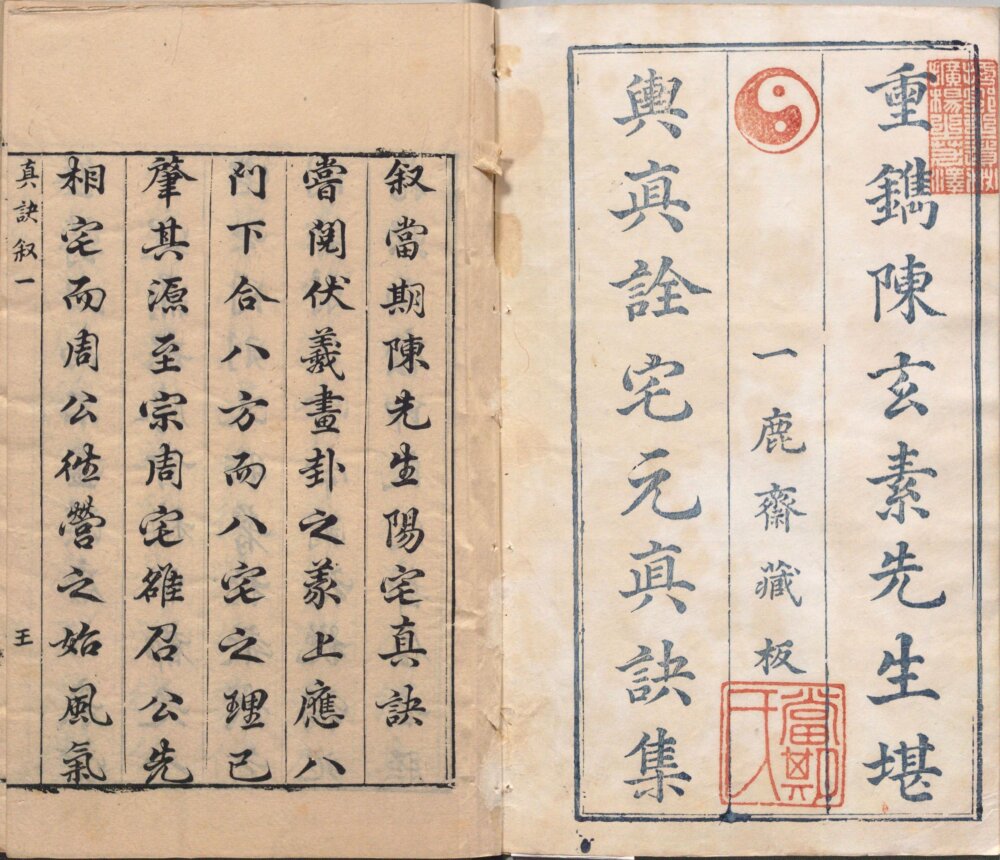 重鐫陳玄素先生堪
一鹿齋藏板
輿真詮宅元真訣集
當期氏
叙當期陳先生陽宅真訣
嘗閱伏羲畫卦之義上應八
門下合八方而八宅之理已
肇其源至宗周宅雒召公先
相宅而周公徃營之始風氣
真訣叙一
王